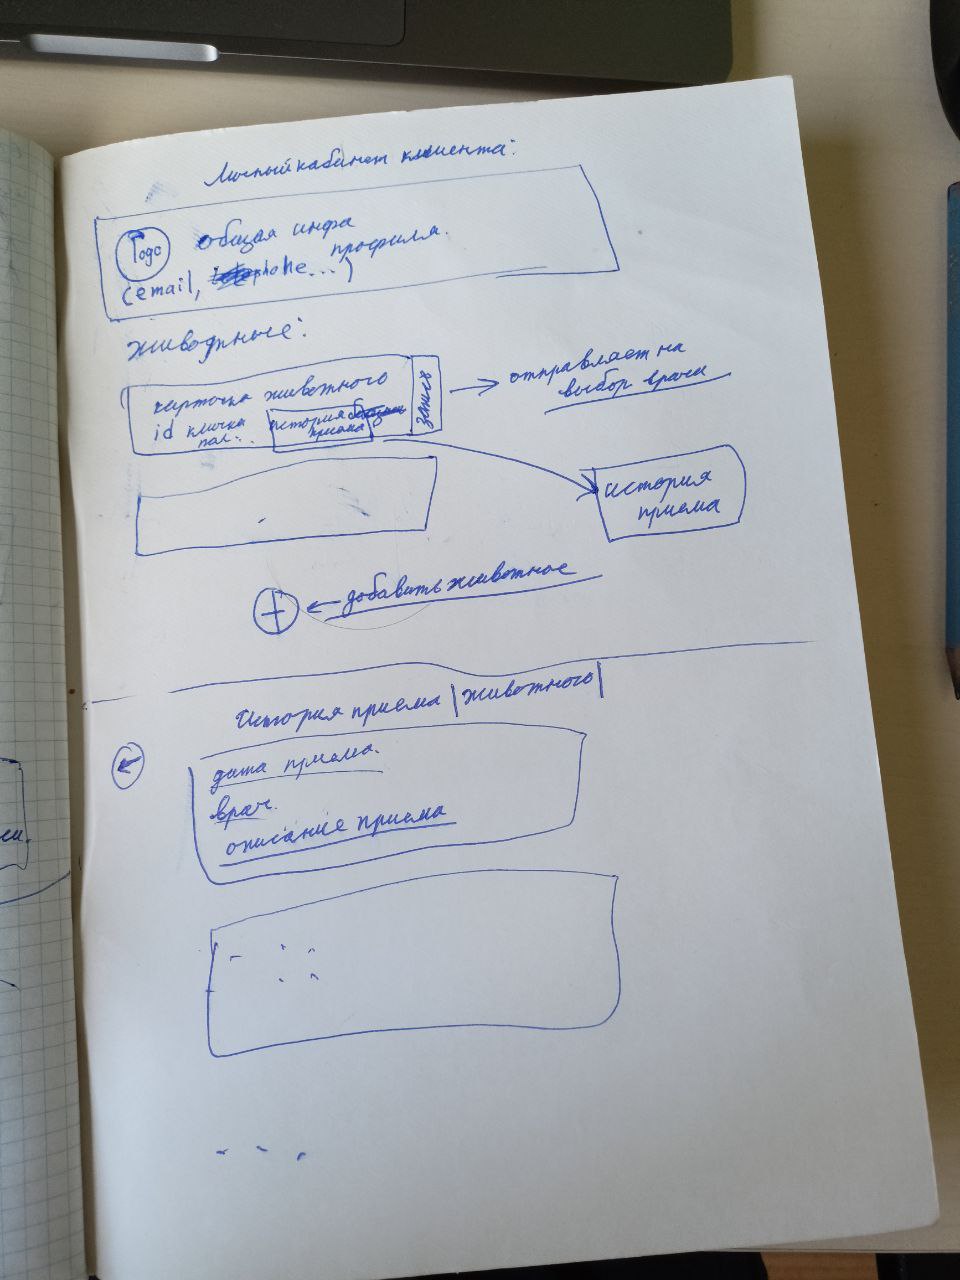 Личный кабинет клиента:
Logo
общая инфа
профиля.
(email, phone...)
животные:
карточка животного
id кличка
пол...
история
приема
запись
отправляет на
выбор врача
история
приема
+ ← добавить животное
История приема |животного|
←
дата приема.
врач.
описание приема
...